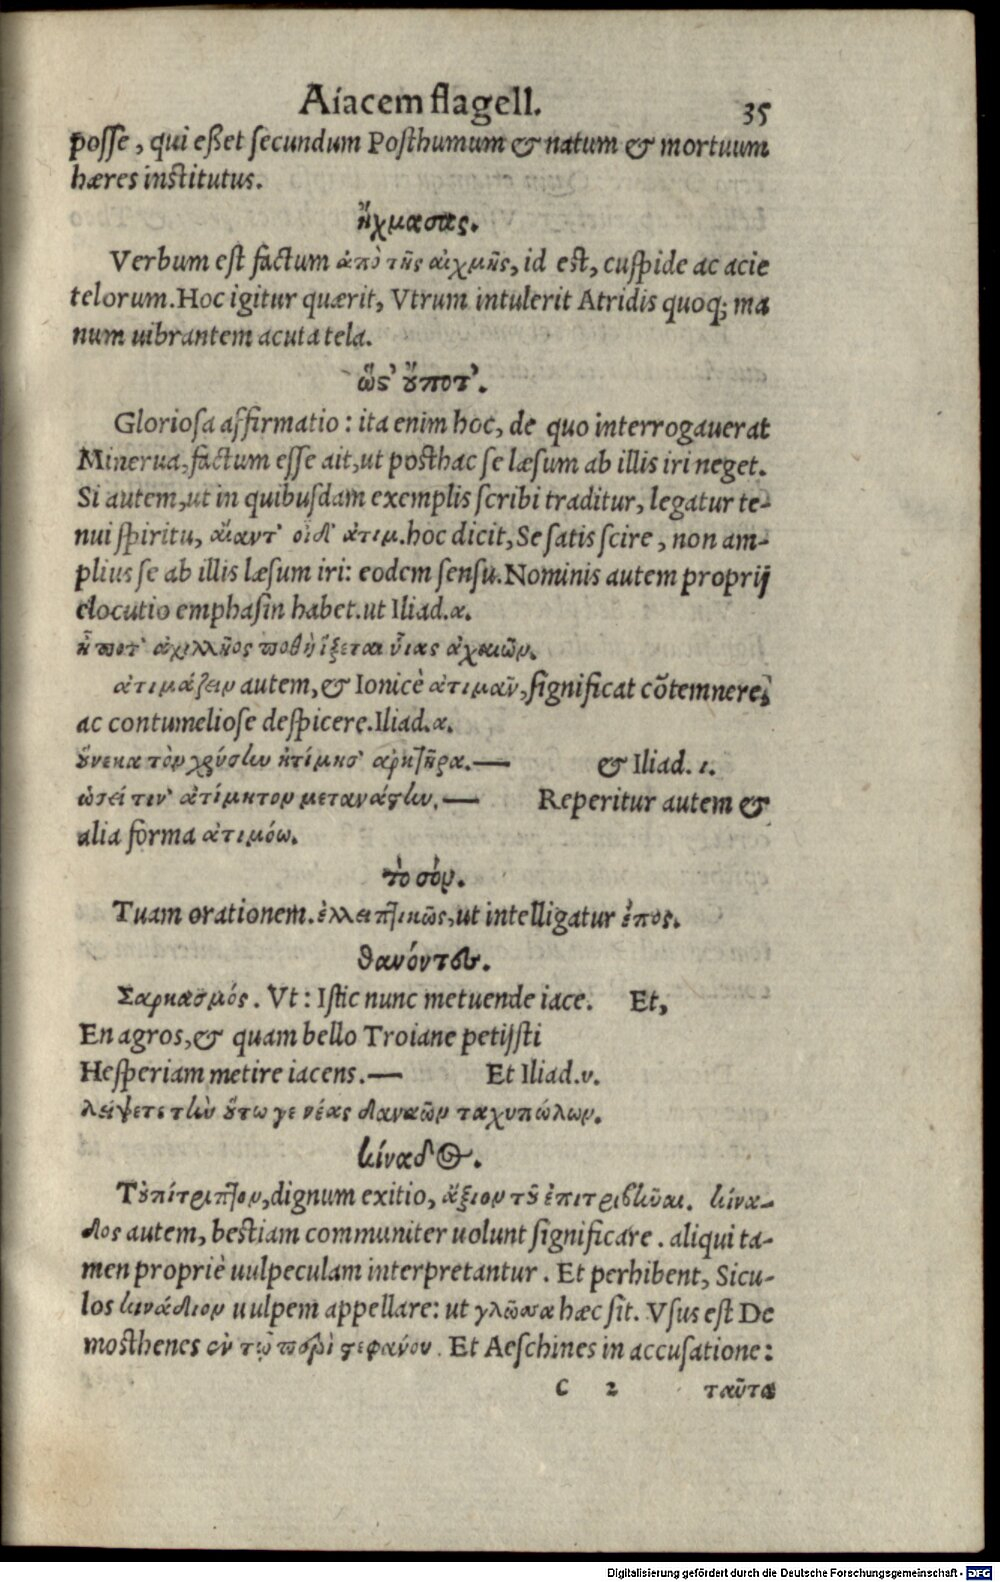 Aiacem flagell. 35
posse, qui eßet secundum Posthumum & natum & mortuum
hæres institutus.
ᾔχμασας.
Verbum est factum ἀπὸ τῆς αἰχμῆς, id est, cuspide ac acie
telorum. Hoc igitur quærit, Vtrum intulerit Atridis quoq; ma
num uibrantem acuta tela.
ὥς' οὔποτ'.
Gloriosa affirmatio: ita enim hoc, de quo interrogauerat
Minerua, factum esse ait, ut posthac se læsum ab illis iri neget.
Si autem, ut in quibusdam exemplis scribi traditur, legatur te-
nui spiritu, αἴαντ' οἶδ' ἀτιμ. hoc dicit, Se satis scire, non am-
plius se ab illis læsum iri: eodem sensu. Nominis autem proprij
elocutio emphasin habet. ut Iliad. α.
ἦ ποτ' ἀχιλλῆος ποθὴ ἵξεται υἷας ἀχαιῶν.
ἀτιμάζειν autem, & Ionicè ἀτιμᾶν, significat cõtemnere,
ac contumeliose despicere. Iliad. α.
οὕνεκα τὸν χρύσlω ἠτίμησ' ἀρητῆρα.— & Iliad. ι.
ὡσεί τιν' ἀτίμητον μετανάστlω.— Reperitur autem &
alia forma ἀτιμόω.
τὸ σόν.
Tuam orationem. ἐλλειπτικῶς, ut intelligatur ἔπος.
θανόντων.
Σαρκασμός. Vt: Istic nunc metuende iace. Et,
En agros, & quam bello Troiane petijsti
Hesperiam metire iacens.— Et Iliad. ν.
λείψετε τlὼ οὕτω γε νέας δαναῶν ταχυπώλων.
κίναδος.
Τοὐπίτριπτον, dignum exitio, ἄξιον τοῦ ἐπιτριβῆναι. κίνα-
δος autem, bestiam communiter uolunt significare. aliqui ta-
men propriè uulpeculam interpretantur. Et perhibent, Sicu-
los κινάδιον uulpem appellare: ut γλῶσσα hæc sit. Vsus est De
mosthenes ἐν τῷ περὶ στεφάνου. Et Aeschines in accusatione:
C 2 ταῦτα
Digitalisierung gefördert durch die Deutsche Forschungsgemeinschaft - DFG